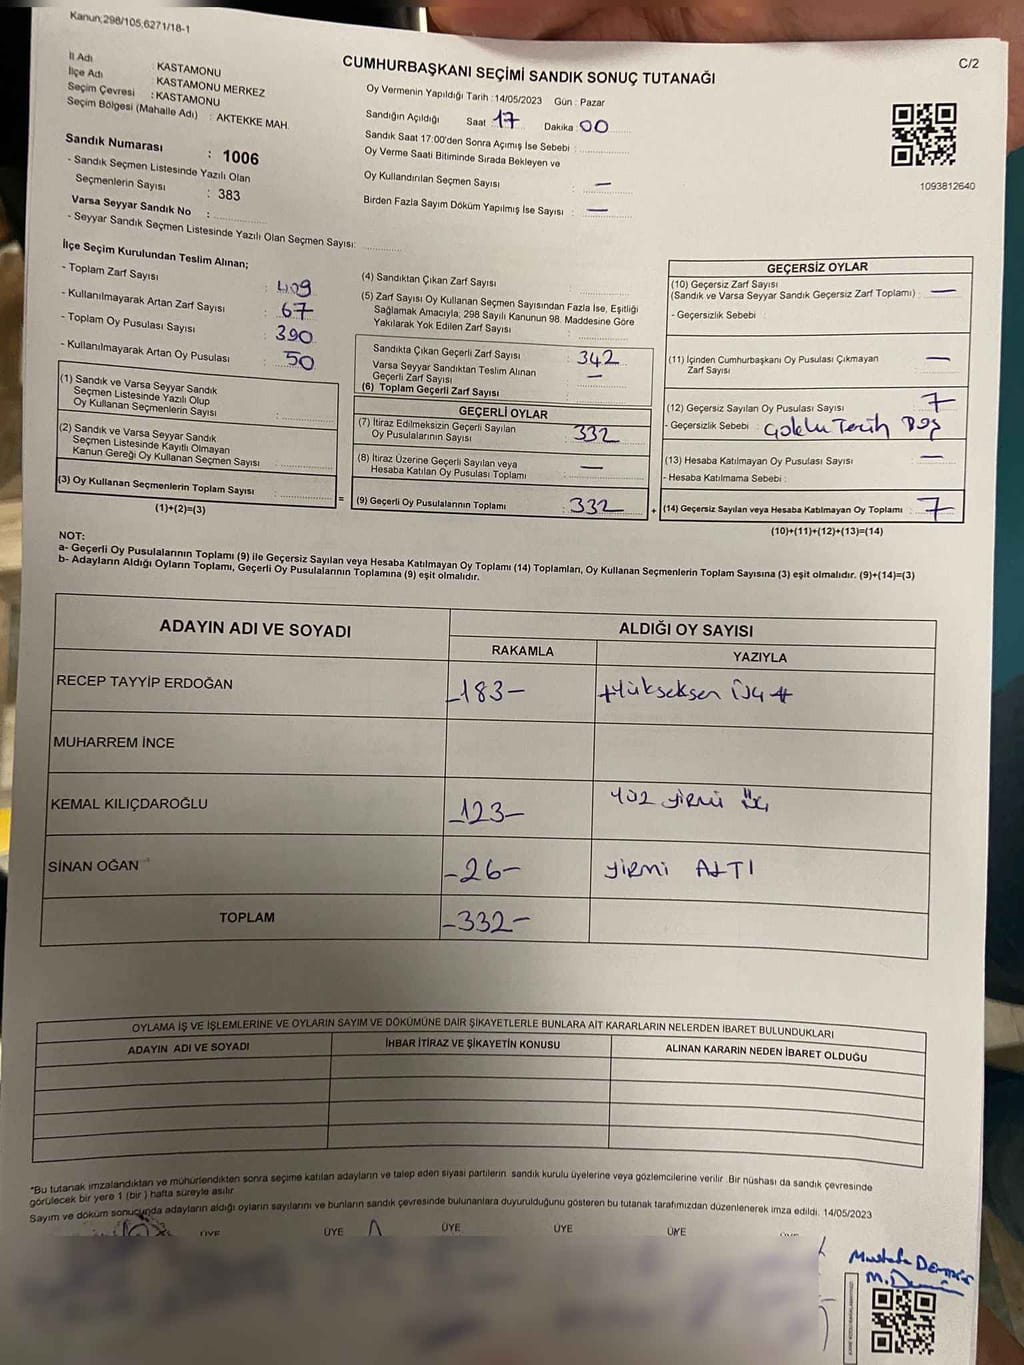 Kanun;298/105;6271/18-1
C/2
CUMHURBAŞKANI SEÇİMİ SANDIK SONUÇ TUTANAĞI
İl Adı : KASTAMONU
İlçe Adı : KASTAMONU MERKEZ
Seçim Çevresi : KASTAMONU
Seçim Bölgesi (Mahalle Adı) : AKTEKKE MAH.
Sandık Numarası : 1006
- Sandık Seçmen Listesinde Yazılı Olan
Seçmenlerin Sayısı : 383
Varsa Seyyar Sandık No :
- Seyyar Sandık Seçmen Listesinde Yazılı Olan Seçmen Sayısı:
Oy Vermenin Yapıldığı Tarih : 14/05/2023 Gün : Pazar
Sandığın Açıldığı Saat 17 Dakika : 00
Sandık Saat 17:00'den Sonra Açımış İse Sebebi :
Oy Verme Saati Bitiminde Sırada Bekleyen ve
Oy Kullandırılan Seçmen Sayısı : —
Birden Fazla Sayım Döküm Yapılmış İse Sayısı : —
1093812640
İlçe Seçim Kurulundan Teslim Alınan;
- Toplam Zarf Sayısı : 409
- Kullanılmayarak Artan Zarf Sayısı : 67
- Toplam Oy Pusulası Sayısı : 390
- Kullanılmayarak Artan Oy Pusulası : 50
(1) Sandık ve Varsa Seyyar Sandık
Seçmen Listesinde Yazılı Olup
Oy Kullanan Seçmenlerin Sayısı :
(2) Sandık ve Varsa Seyyar Sandık
Seçmen Listesinde Kayıtlı Olmayan
Kanun Gereği Oy Kullanan Seçmen Sayısı :
(3) Oy Kullanan Seçmenlerin Toplam Sayısı :
(1)+(2)=(3)
(4) Sandıktan Çıkan Zarf Sayısı :
(5) Zarf Sayısı Oy Kullanan Seçmen Sayısından Fazla İse, Eşitliği
Sağlamak Amacıyla, 298 Sayılı Kanunun 98. Maddesine Göre
Yakılarak Yok Edilen Zarf Sayısı :
Sandıkta Çıkan Geçerli Zarf Sayısı : 342
Varsa Seyyar Sandıktan Teslim Alınan
Geçerli Zarf Sayısı : —
(6) Toplam Geçerli Zarf Sayısı :
GEÇERLİ OYLAR
(7) İtiraz Edilmeksizin Geçerli Sayılan
Oy Pusulalarının Sayısı : 332
(8) İtiraz Üzerine Geçerli Sayılan veya
Hesaba Katılan Oy Pusulası Toplamı : —
= (9) Geçerli Oy Pusulalarının Toplamı : 332
GEÇERSİZ OYLAR
(10) Geçersiz Zarf Sayısı
(Sandık ve Varsa Seyyar Sandık Geçersiz Zarf Toplamı) : —
- Geçersizlik Sebebi :
(11) İçinden Cumhurbaşkanı Oy Pusulası Çıkmayan
Zarf Sayısı : —
(12) Geçersiz Sayılan Oy Pusulası Sayısı : 7
- Geçersizlik Sebebi :
(13) Hesaba Katılmayan Oy Pusulası Sayısı : —
- Hesaba Katılmama Sebebi :
+ (14) Geçersiz Sayılan veya Hesaba Katılmayan Oy Toplamı : 7
(10)+(11)+(12)+(13)=(14)
NOT:
a- Geçerli Oy Pusulalarının Toplamı (9) ile Geçersiz Sayılan veya Hesaba Katılmayan Oy Toplamı (14) Toplamları, Oy Kullanan Seçmenlerin Toplam Sayısına (3) eşit olmalıdır. (9)+(14)=(3)
b- Adayların Aldığı Oyların Toplamı, Geçerli Oy Pusulalarının Toplamına (9) eşit olmalıdır.
ADAYIN ADI VE SOYADI
ALDIĞI OY SAYISI
RAKAMLA
YAZIYLA
RECEP TAYYİP ERDOĞAN -183- yükseksen üç
MUHARREM İNCE
KEMAL KILIÇDAROĞLU -123- yüz yirmi üç
SİNAN OĞAN -26- yirmi ALTI
TOPLAM -332-
OYLAMA İŞ VE İŞLEMLERİNE VE OYLARIN SAYIM VE DÖKÜMÜNE DAİR ŞİKAYETLERLE BUNLARA AİT KARARLARIN NELERDEN İBARET BULUNDUKLARI
ADAYIN ADI VE SOYADI
İHBAR İTİRAZ VE ŞİKAYETİN KONUSU
ALINAN KARARIN NEDEN İBARET OLDUĞU
*Bu tutanak imzalandıktan ve mühürlendikten sonra seçime katılan adayların ve talep eden siyasi partilerin sandık kurulu üyelerine veya gözlemcilerine verilir. Bir nüshası da sandık çevresinde
görülecek bir yere 1 (bir) hafta süreyle asılır.
Sayım ve döküm sonucunda adayların aldığı oyların sayılarını ve bunların sandık çevresinde bulunanlara duyurulduğunu gösteren bu tutanak tarafımızdan düzenlenerek imza edildi. 14/05/2023
ÜYE ÜYE ÜYE ÜYE ÜYE
Mustafa Demir
M.Demir